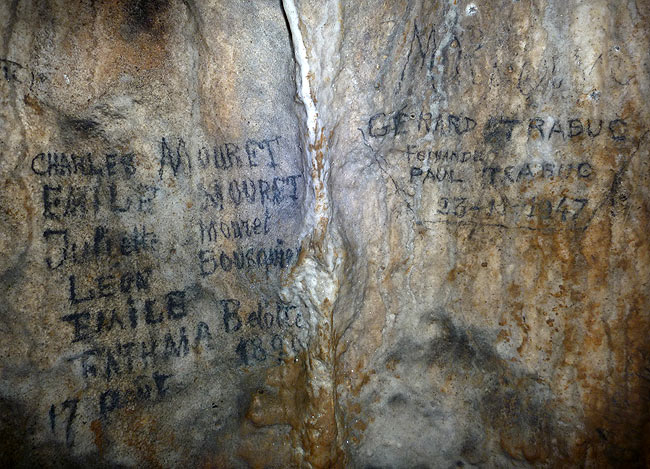 CHARLES MOURET
EMILE MOURET
Juliette Mouret
LEON Bousquier
EMILE
FATHMA Belotte
17 189
GERARD TRABUC
Fernande
PAUL TRABUC
23-11-1947